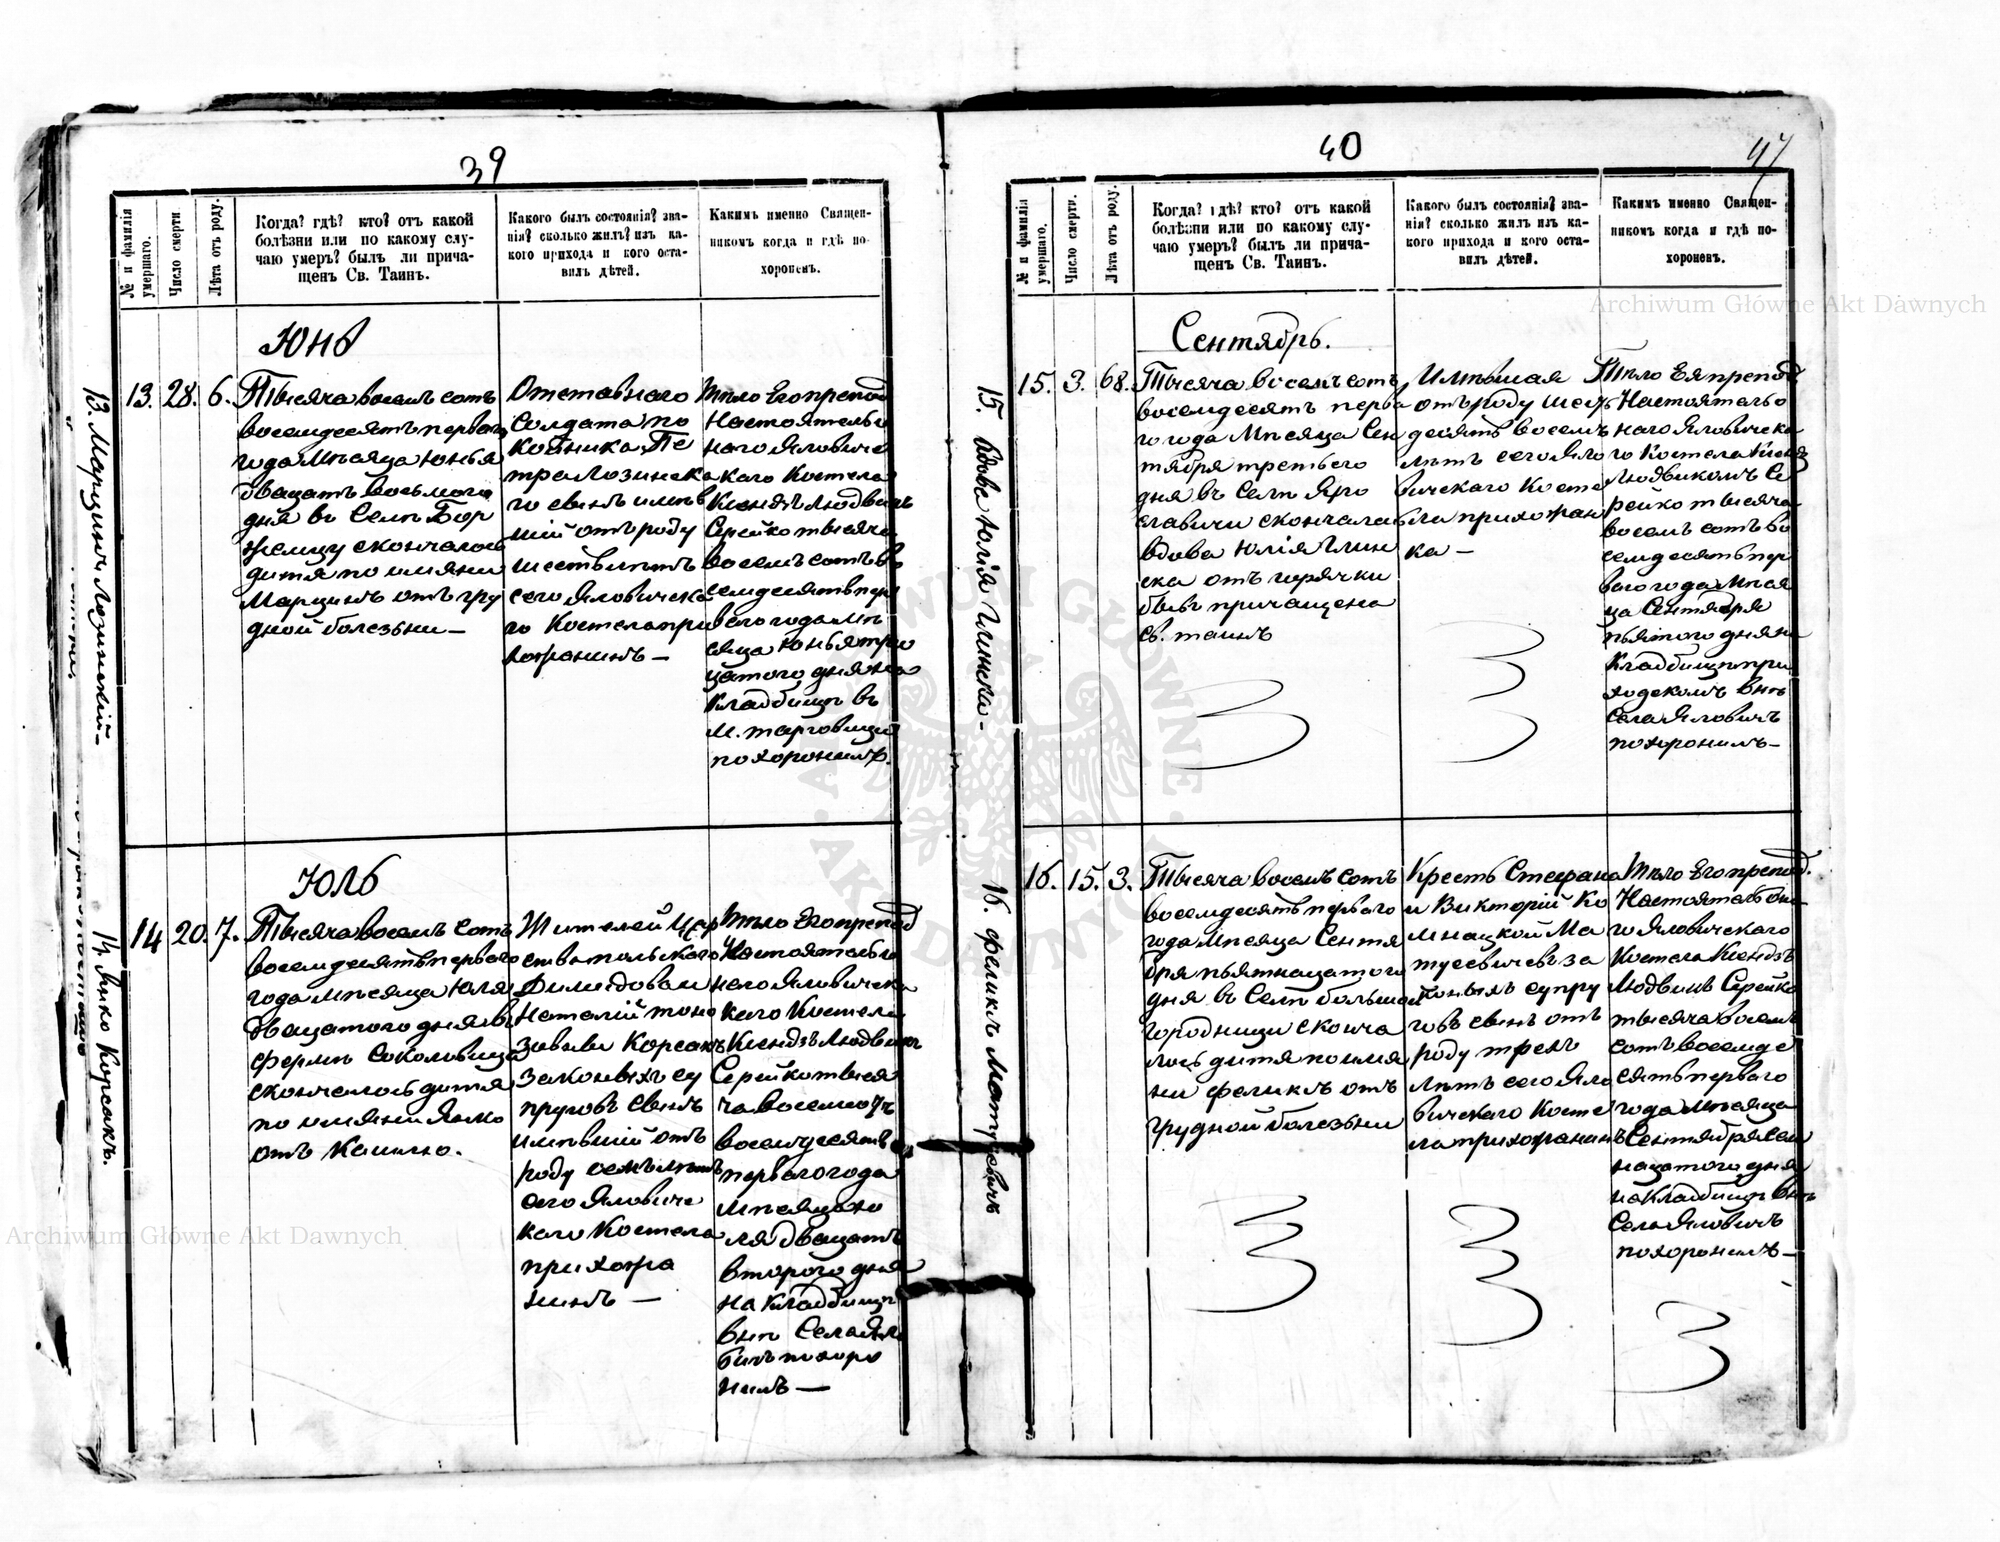 39
№ и фамилія умершаго.
Число смерти.
Лѣта отъ роду.
Когда? гдѣ? кто? отъ какой
болѣзни или по какому слу-
чаю умеръ? былъ ли прича-
щенъ Св. Таинъ.
Какого былъ состоянія? зва-
нія? сколько жилъ? изъ ка-
кого прихода и кого оста-
вилъ дѣтей.
Какимъ именно Священ-
никомъ когда и гдѣ по-
хороненъ.
13. Марцинъ Лозинскій–
Юнь
13. 28. 6.
Тысяча восемъ сотъ
восемдесятъ перваго
года Мѣсяца Юнья
двацатъ восьмого
дня въ Селѣ Бор
жемцу скончалось
дитя по имяни
Марцинъ отъ гру
дной болезьни–
Отставного
Солдата по
койника Пе
тра Лозинска
го сынъ имѣв
шій отъ роду
шесть лѣтъ
сего Яловичска
го Костела при
хожанинъ–
Тѣло Его препод
Настоятельн
наго Яловичс
каго Костела
Ксендзъ Людвикъ
Серейко тысяча
восемъ сотъ во
семдесятъ пер
ваго года Мѣ
сяца Юнья три
цатого дня на
Кладбищѣ въ
м. Тарговици
похоронилъ.
14. Янко Корсакъ.
Юль
14 20. 7.
Тысяча восемъ сотъ
восемдесятъ перваго
года Мѣсяца Юля
двацатого дня въ
фермѣ Соколовища
скончалось дитя
по имяни Янко
отъ Кашлю.
Жителей Цар
ства польскаго
Наталій
Корсакъ
законыхъ су
пруговъ сынъ
имѣвшій отъ
роду семъ лѣтъ
сего Яловичс
каго Костела
прихожа
нинъ –
Тѣло Его препод
Настоятельн
наго Яловичска
каго Костела
Ксендзъ Людвикъ
Серейко тыся
ча восемсотъ
восемдесятъ
перваго года
Мѣсяца Ю
ля двацатъ
второго дня
на Кладбищѣ
внѣ Села Яло
вичъ похоро
нилъ–
40
47
№ и фамилія умершаго.
Число смерти.
Лѣта отъ роду.
Когда? гдѣ? кто? отъ какой
болѣзни или по какому слу-
чаю умеръ? былъ ли прича-
щенъ Св. Таинъ.
Какого былъ состоянія? зва-
нія? сколько жилъ изъ ка-
кого прихода и кого оста-
вилъ дѣтей.
Какимъ именно Священ-
никомъ когда и гдѣ по-
хороненъ.
15. Вдова Юлія Глинска–
Сентябрь.
15. 3. 68.
Тысяча восемъ сотъ
восемдесятъ перва
го года Мѣсяца Сен
тября третьего
дня въ Селѣ Яро
славичи скончалась
вдова Юлія Глин
ска отъ горячки
бывъ причащена
св. таинъ
Имѣвшая
отъ роду шесть
десятъ восемъ
лѣтъ сего Яло
вичскаго Косте
ла прихожан
ка–
Тѣло Ея препод.
Настоятельно
наго Яловичска
го Костела Ксендз
Людвикомъ Се
рейко тысяча
восемъ сотъ во
семдесятъ пер
ваго года Мѣся
ца Сентября
пьятого дня на
Кладбищѣ при
ходскомъ внѣ
Села Яловичъ
похоронилъ–
16. Феликсъ Матусевичъ
16. 15. 3.
Тысяча восемъ сотъ
восемдесятъ перваго
года Мѣсяца Сентя
бря пьятнацатого
дня въ Селѣ большой
городници сконча
лось дитя по имя
ни Феликсъ отъ
грудной болезьни
Крестъ Стефана
и Викторій Ко
мнацкой Ма
тусевичевъ за
коныхъ супру
говъ сынъ отъ
роду трехъ
лѣтъ сего Яло
вичскаго Косте
ла прихожанинъ
Тѣло Его препод.
Настоятельна
го Яловичскаго
Костела Ксендзъ
Людвикъ Серейко
тысяча восемъ
сотъ восемде
сятъ перваго
года Мѣсяца
Сентября сем
нацатого дня
на Кладбищѣ внѣ
Села Яловичъ
похоронилъ–
Archiwum Główne Akt Dawnych
Archiwum Główne Akt Dawnych